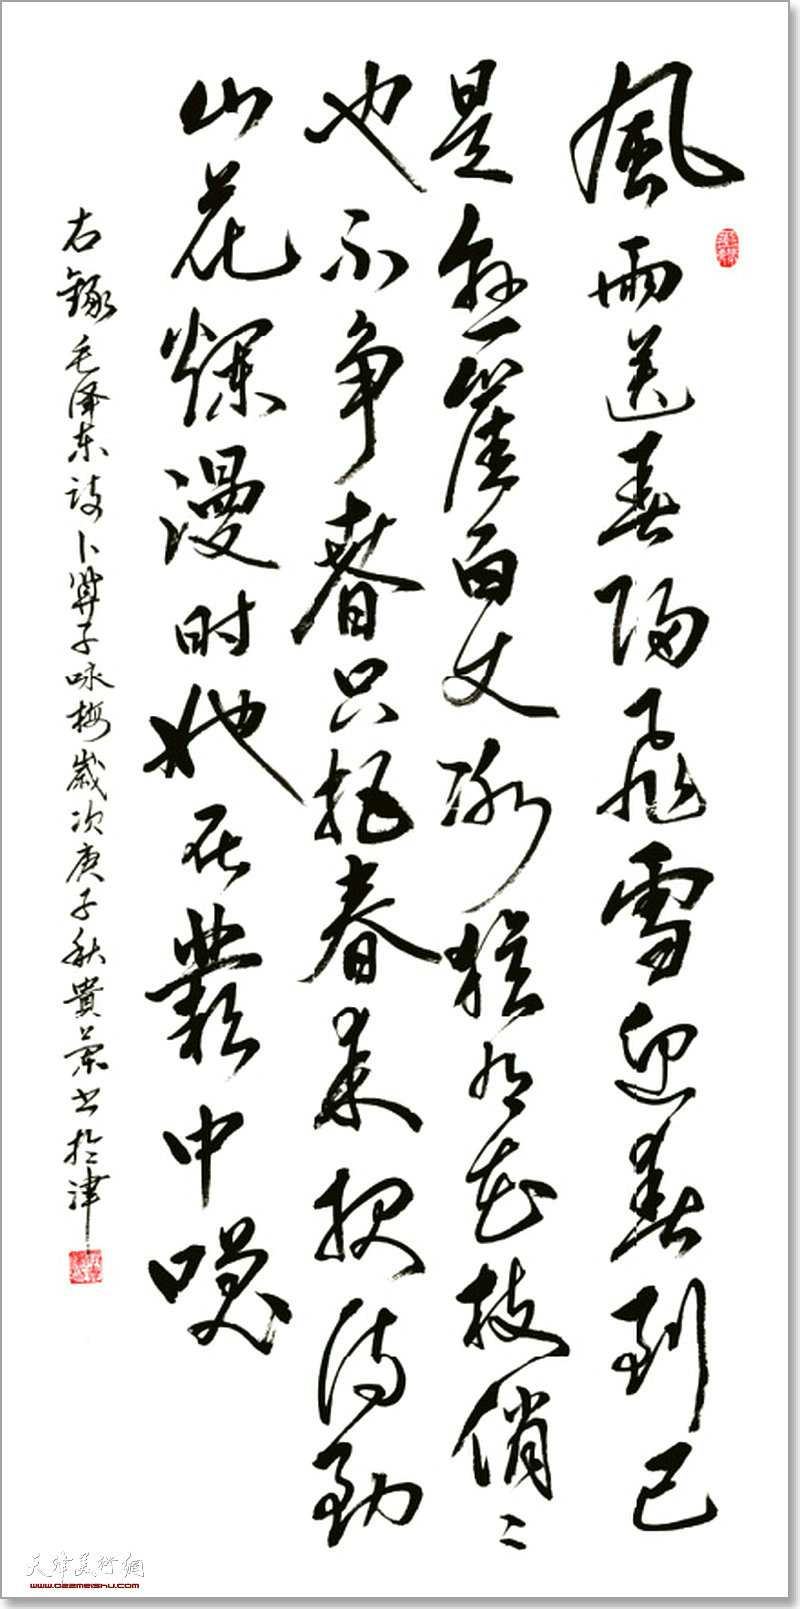 風雨送春歸飛雪迎春到已
是懸崖百丈冰猶有花枝俏〻
也不争春只把春来报待到
山花爛漫时她在叢中咲
右錄毛泽东诗卜算子咏梅歲次庚子秋貴兰书於津
天津美术網
www.022meishu.com